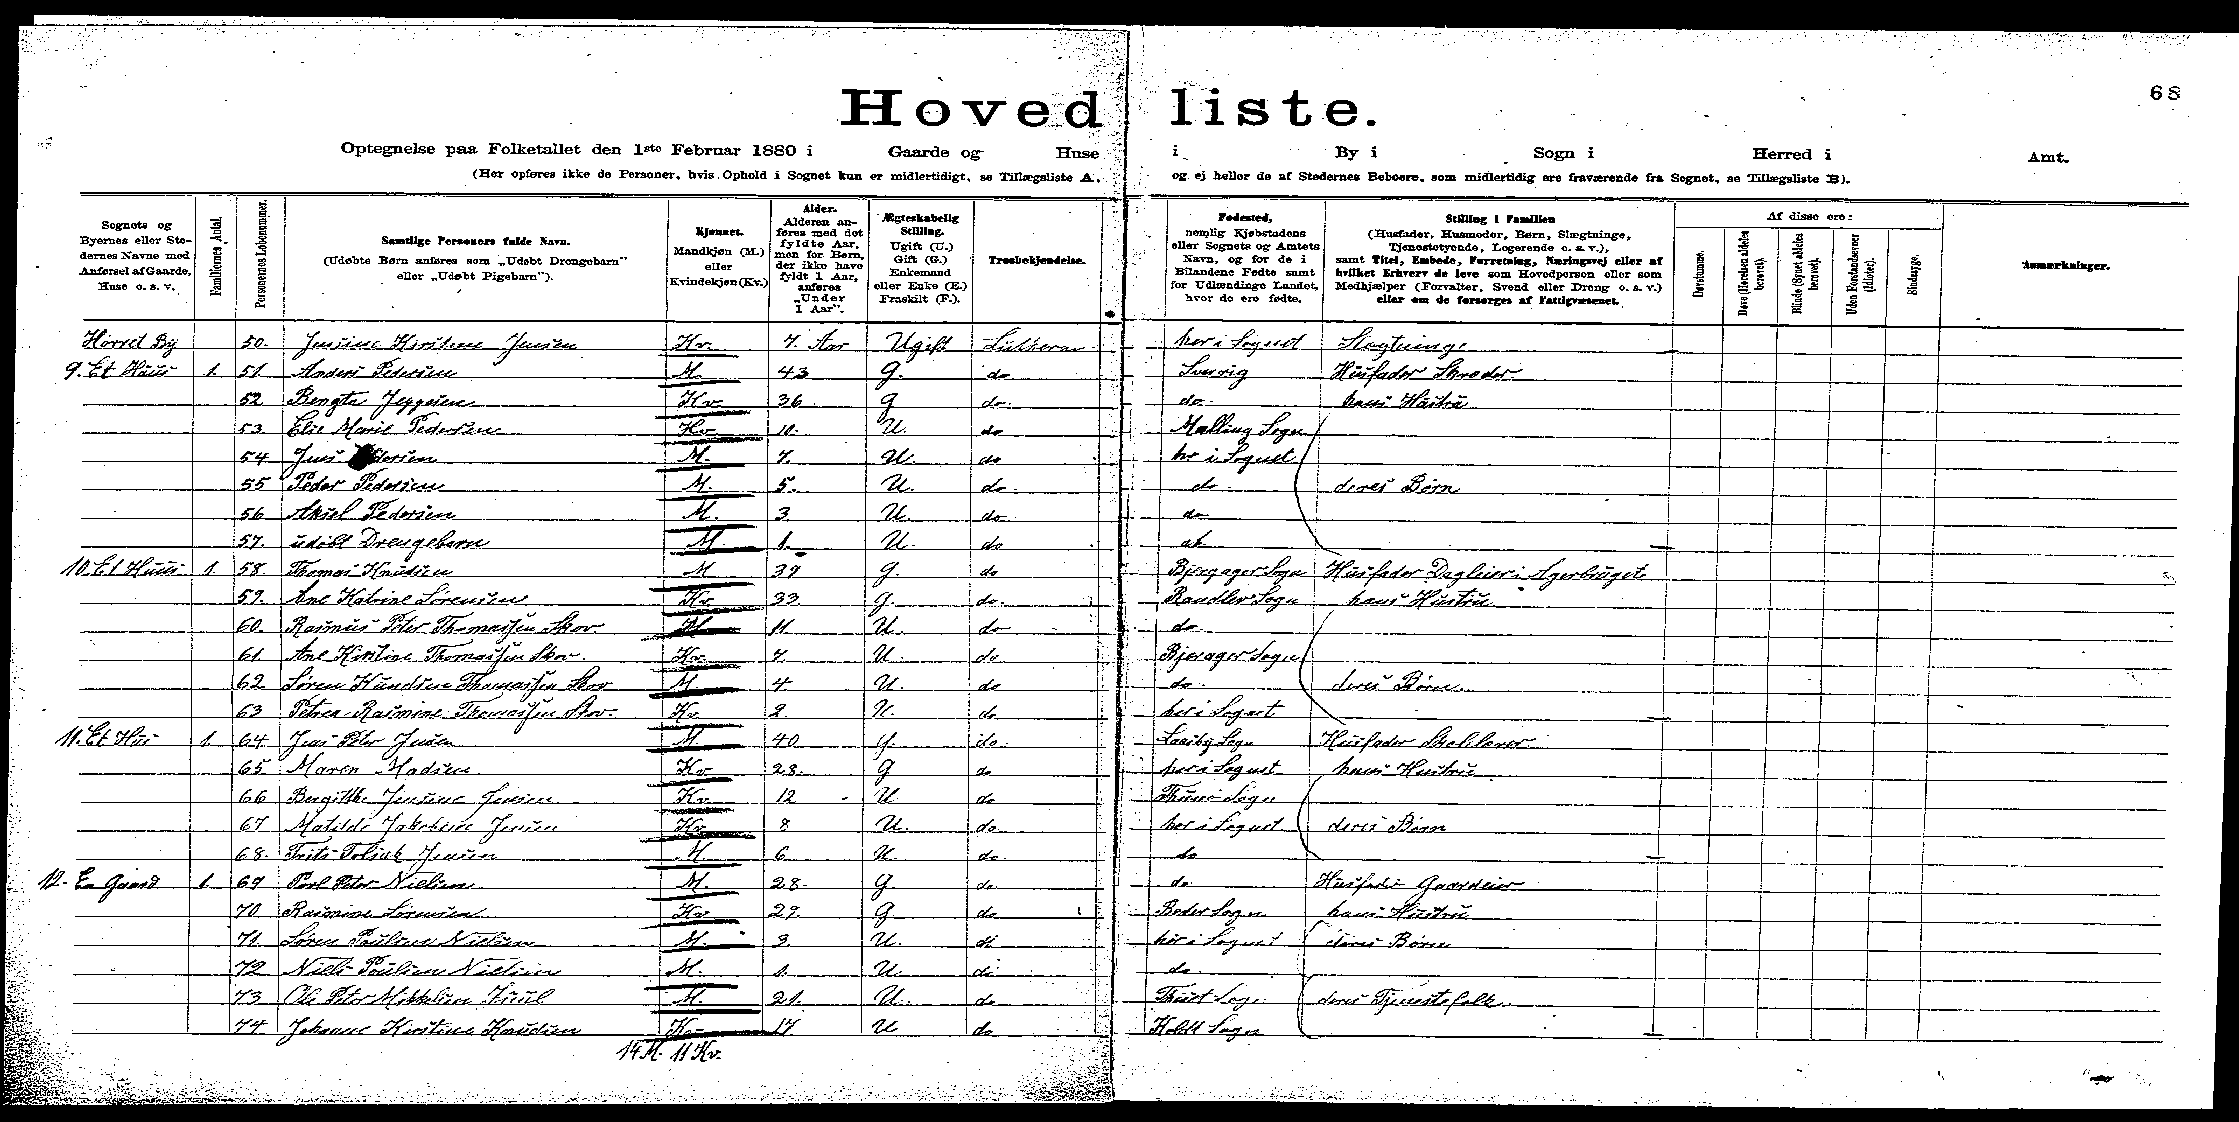 68
Hovedliste.
Optegnelse paa Folketallet den 1ste Februar 1880 i Gaarde og Huse i By i Sogn i Herred i Amt.
(Her opføres ikke de Personer, hvis Ophold i Sognet kun er midlertidigt, se Tillægsliste A, og ej heller de af Stedernes Beboere, som midlertidig ere fraværende fra Sognet, se Tillægsliste B).
Sognets og Byernes eller Stedernes Navne med Anførsel af Gaarde, Huse o. s. v.
Familiernes Antal.
Personernes Løbenummer.
Samtlige Personers fulde Navn. (Udøbte Børn anføres som „Udøbt Drengebarn" eller „Udøbt Pigebarn").
Kjønnet. Mandkjøn (M.) eller Kvindekjøn (Kv.)
Alder. Alderen anføres med det fyldte Aar, men for Børn, der ikke have fyldt 1 Aar, anføres „Under 1 Aar".
Ægteskabelig Stilling. Ugift (U.) Gift (G.) Enkemand eller Enke (E.) Fraskilt (F.).
Troesbekjendelse.
Fødested, nemlig Kjøbstadens eller Sognets og Amtets Navn, og for de i Bilandene Fødte samt for Udlændinge Landet, hvor de ere fødte.
Stilling i Familien (Husfader, Husmoder, Børn, Slægtninge, Tjenestetyende, Logerende o. s. v.), samt Titel, Embede, Forretning, Næringsvej eller af hvilket Erhverv de leve som Hovedperson eller som Medhjælper (Forvalter, Svend eller Dreng o. s. v.) eller om de forsørges af Fattigvæsenet.
Af disse ere:
Døvstumme.
Døve (Hørelsen aldeles berøvet).
Blinde (Synet aldeles berøvet).
Uden Forstandsevner (Idioter).
Sindssyge.
Anmærkninger.
Hørret By 50. Jensine Kirstine Jensen Kv. 7. Aar Ugift Luthersn her i Sognet Slægtning.
9. Et Huus 1. 51. Anders Pedersen M. 43 G. do Sverrig Husfader Skræder
52 Bengta Jeppesen Kv. 36 g do. do. hans Hustru
53. Else Marie Pedersen Kv. 10. U. do Malling Sogn
54 Jens Pedersen M. 7. U. do her i Sognet
55 Peder Pedersen M. 5. U. do do deres Børn
56 Aksel Pedersen M. 3 U. do do
57. udøbt Drengebarn M. 1. U do
10. Et Huus 1. 58. Thomas Knudsen M 39 g. do Bjeragager Sogn Husfader Dagleier i Agerbruget
59. Ane Katrine Sørensen Kv. 33 g. do. Randlev Sogn hans Hustru
60. Rasmus Peter Thomassen Skov. M 11 U. do do
61. Ane Kirstine Thomassen Skov. Kv. 7. U. do Bjerager Sogn
62 Søren Knudsen Thomassen Skov M. 4 U. do do. deres Børn.
63 Petrea Rasmine Thomassen Skov. Kv. 2. U. do her i Sognet
11. Et Hus 1. 64. Jens Peter Jensen M 40 g. do. Laasby Sogn Husfader
65 Maren Madsen Kv. 28. g do her i Sognet hans Hustru
66 Bergitthe Jensine Jensen Kv. 12 U do Sogn
67 Matilde Jakobine Jensen Kv. 8 U. do her i Sognet deres Børn
68. Frits Jensen M. 6 U. do do
12. En Gaard 1. 69 Poul Peter Nielsen M. 28 g. do do Husfader Gaardeier
70 Rasmine Sørensen Kv. 29 g do Beder Sogn hans Hustru
71. Søren Poulsen Nielsen M. 3. U. do her i Sognet deres Børn
72 Niels Poulsen Nielsen M. 1. U. do do
73 Ole Peter Mikkelsen Juul M. 21. U. do Sogn deres Tjenestefolk.
74 Johanne Kirstine Knudsen Kv. 17 U do Koldt Sogn
14 M. 11 Kv.